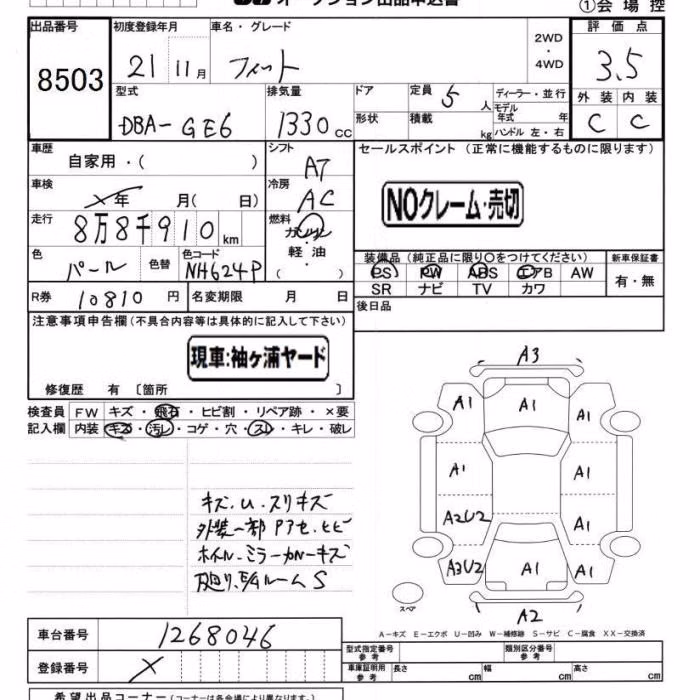 オークション出品申込書
①会場控
出品番号
8503
初度登録年月
21 11月
車名・グレード
フィット
2WD
・
4WD
評価点
3.5
外装 内装
C C
型式
DBA-GE6
排気量
1330cc
ドア
形状
定員 5人
積載 kg
ディーラー・並行
モデル年式 年
ハンドル 左・右
車歴
自家用・( )
車検
✓年 月( 日)
走行
8万8千910km
色
パール
色替
色コード
NH624P
シフト
AT
冷房
AC
燃料
ガソリン
軽油
( )
セールスポイント（正常に機能するものに限ります）
NOクレーム・売切
装備品（純正品に限り〇をつけてください）
PS PW ABS エアB AW
SR ナビ TV カワ
新車保証書
有・無
R券 10810円
名変期限 月 日
後日品
注意事項申告欄（不具合内容等は具体的に記入して下さい）
現車:袖ヶ浦ヤード
修復歴 有 〔箇所 〕
検査員記入欄
FW キズ・飛石・ヒビ割・リペア跡・×要
内装 キズ・汚レ・コゲ・穴・スレ・キレ・破レ
キズ.U.スリキズ
外装一部Pアセ.ヒビ
ホイル.ミラーカバーキズ
下廻り.E/Gルーム S
A3
A1 A1 A1
A1 A1
A2U2 A1
A3U2 A1 A1
A2
スペア
A－キズ E－エクボ U－凹み W－補修跡 S－サビ C－腐食 XX－交換済
車台番号
1268046
登録番号
X
型式指定番号
参考
類別区分番号
参考
車庫証明用
参考
長さ cm 幅 cm 高さ cm
希望出品コーナー（コーナーは各会場により異なります）